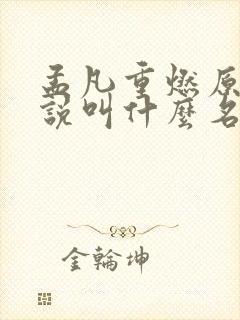 孟凡重燃原
說叫什麼名
金輪坤